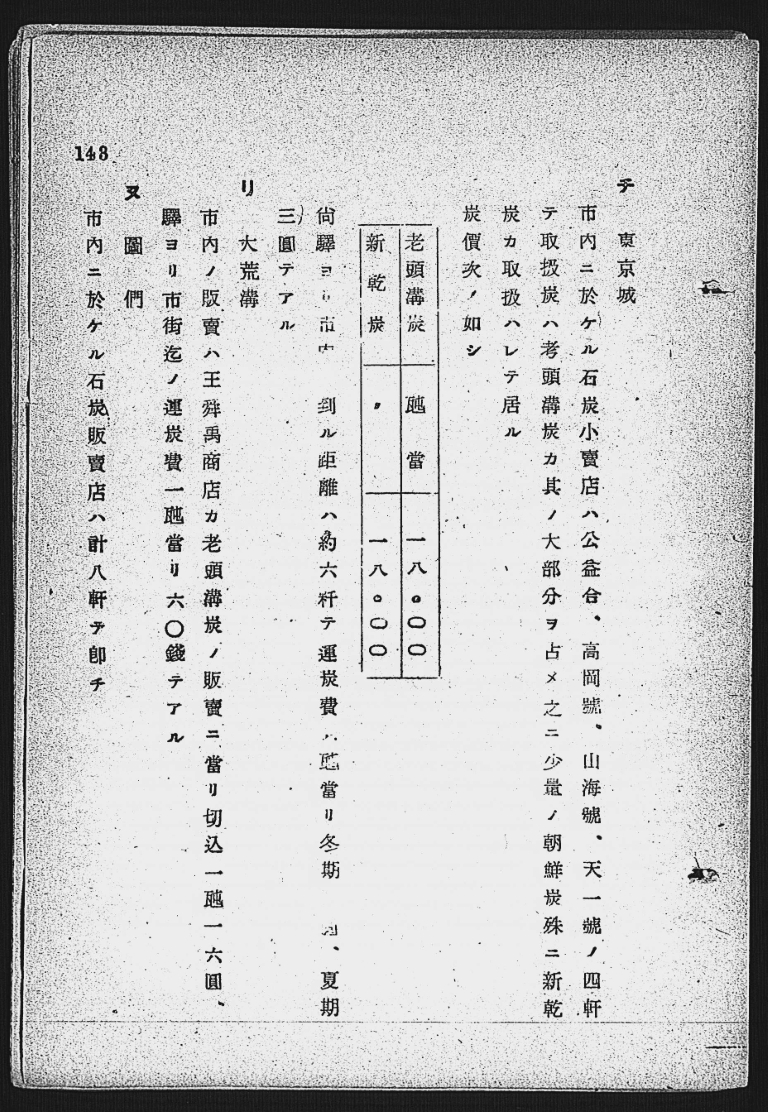 チ 東京城
市内ニ於ケル石炭小賣店ハ公益合、高岡號、山海號、天一號ノ四軒
テ取扱炭ハ老頭溝炭カ其ノ大部分ヲ占メ之ニ少量ノ朝鮮炭殊ニ新乾
炭カ取扱ハレテ居ル
炭價次ノ如シ
老頭溝炭 瓲當 一八。〇〇
新乾炭 〃 一八。〇〇
尙驛ヨリ市内 到ル距離ハ約六粁テ運炭費ハ瓲當リ冬期 、夏期
三圓テアル
リ 大荒溝
市内ノ販賣ハ王舜禹商店カ老頭溝炭ノ販賣ニ當リ切込一瓲一六圓、
驛ヨリ市街迄ノ運炭費一瓲當リ六〇錢テアル
ヌ 圖們
市内ニ於ケル石炭販賣店ハ計八軒テ卽チ
148